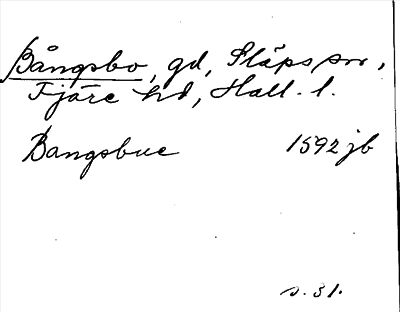 Bångsbo, gd, Släps sn,
Fjäre hd, Hall. l.
Bangsbue 1592 jb
s. 31.